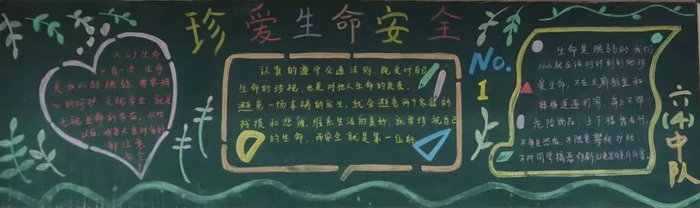 珍爱生命安全
人的生命
只有一次,生命
是如此的脆弱,需要精
心的呵护,无视安全,就是
无视生命的存在,从此
以后,
都注意
安全
认真的遵守交通法则,既是对自己
生命的珍视,也是对他人生命的负责。
避免一场车祸的发生,就会避免两个家庭的
残损和悲痛,维系生活的美好,就要珍视自己
的生命,而安全就是第一位的
No.
1
生命是脆弱的我们
从小就应该时时刻刻地珍
爱生命,不在走廊教室和
楼梯道追逐打闹,身上不带
危险物品,上下楼靠右行,
不得
不对同学搞恶作剧以免发生意外伤害。
六(4)中队